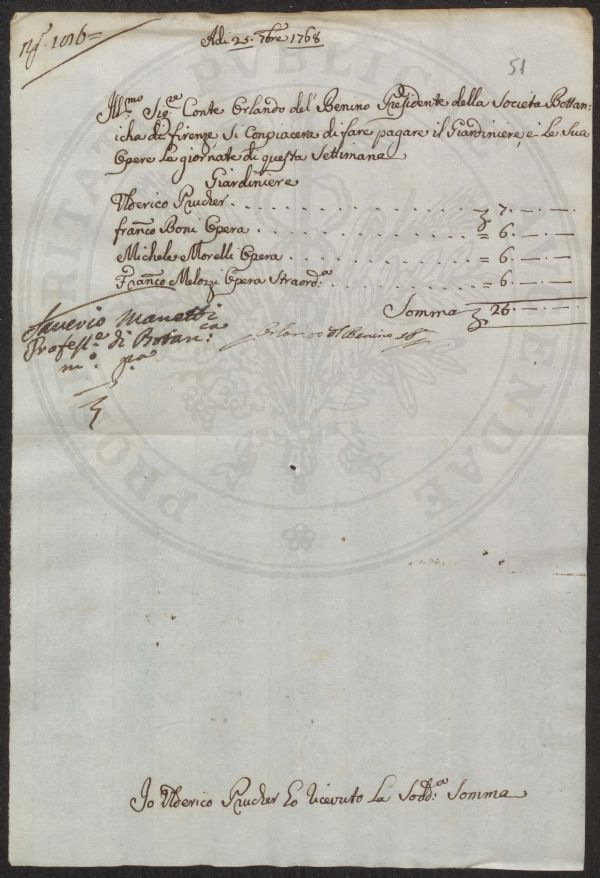 N.º 1016=
Adi 25. 7bre 1768
51
Ill.mo Sig.re Conte Orlando del' Benino Presidente della Societa Bottan=
icha di firenze Si Conpiacera di fare pagare il Giardiniere, e Le Sua
Opere Le giornate di questa Settimana
Giardiniere
Ulderico Prucher . . . . . . . . . . . 7.—.—
franco Boni Opera . . . . . . . . . . . = 6.—.—
Michele Morelli Opera . . . . . . . . . = 6.—.—
Franco Melozzi Opera Straord.a . . . . . . = 6.—.—
Somma 25.—.—
Saverio Manetti
Profess.e di Botan.ca
m.o p.a
Orlando del Benino
Io Ulderico Prucher ho ricevuto La Sodd.a Somma
PUBLICAE
UTENDAE
PRO